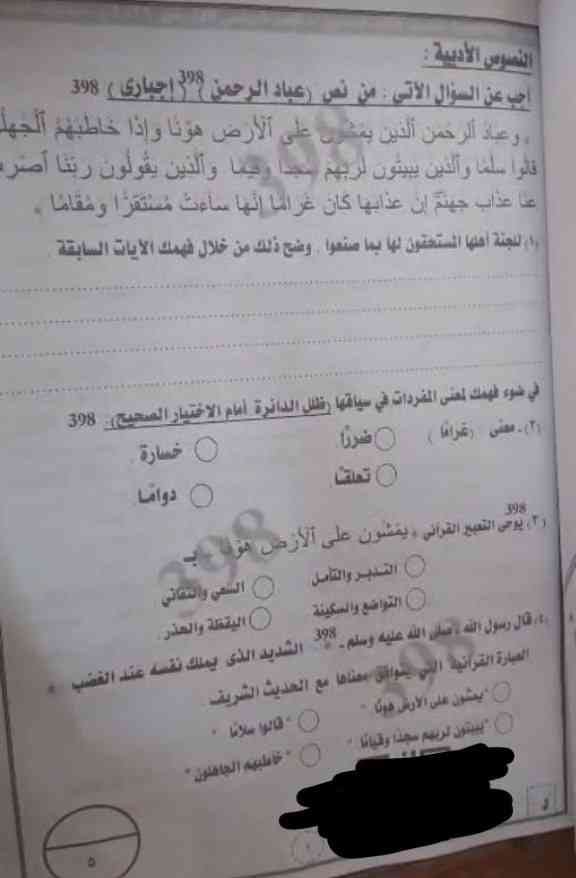 النصوص الأدبية :
أجب عن السؤال الآتى : من نص (عباد الرحمن) 398 (إجبارى) 398
﴿ وعباد ٱلرحمن ٱلذين يمشون على ٱلأرض هونا وإذا خاطبهم ٱلجهل
قالوا سلما وٱلذين يبيتون لربهم سجدا وقيما وٱلذين يقولون ربنا ٱصر
عنا عذاب جهنم إن عذابها كان غراما إنها ساءت مستقرا ومقاما ﴾
(١) للجنة أهلها المستحقون لها بما صنعوا . وضح ذلك من خلال فهمك الآيات السابقة .
فى ضوء فهمك لمعنى المفردات فى سياقها (ظلل الدائرة أمام الاختيار الصحيح): 398
(٢) - معنى (غراما)
ضررًا
خسارة .
تعلقًا
دوامًا .
398
(٣) يوحى التعبير القرآنى " يمشون على ٱلأرض هونا " بـ
التدبر والتأمل
السعى والتفانى
التواضع والسكينة
اليقظة والحذر .
(٤) قال رسول الله - صلى الله عليه وسلم - 398 " الشديد الذى يملك نفسه عند الغضب "
العبارة القرآنية التى يتوافق معناها مع الحديث الشريف
" يمشون على الأرض هونًا "
" قالوا سلامًا "
" يبيتون لربهم سجدًا وقيامًا "
" خاطبهم الجاهلون "
398
398
398
٥